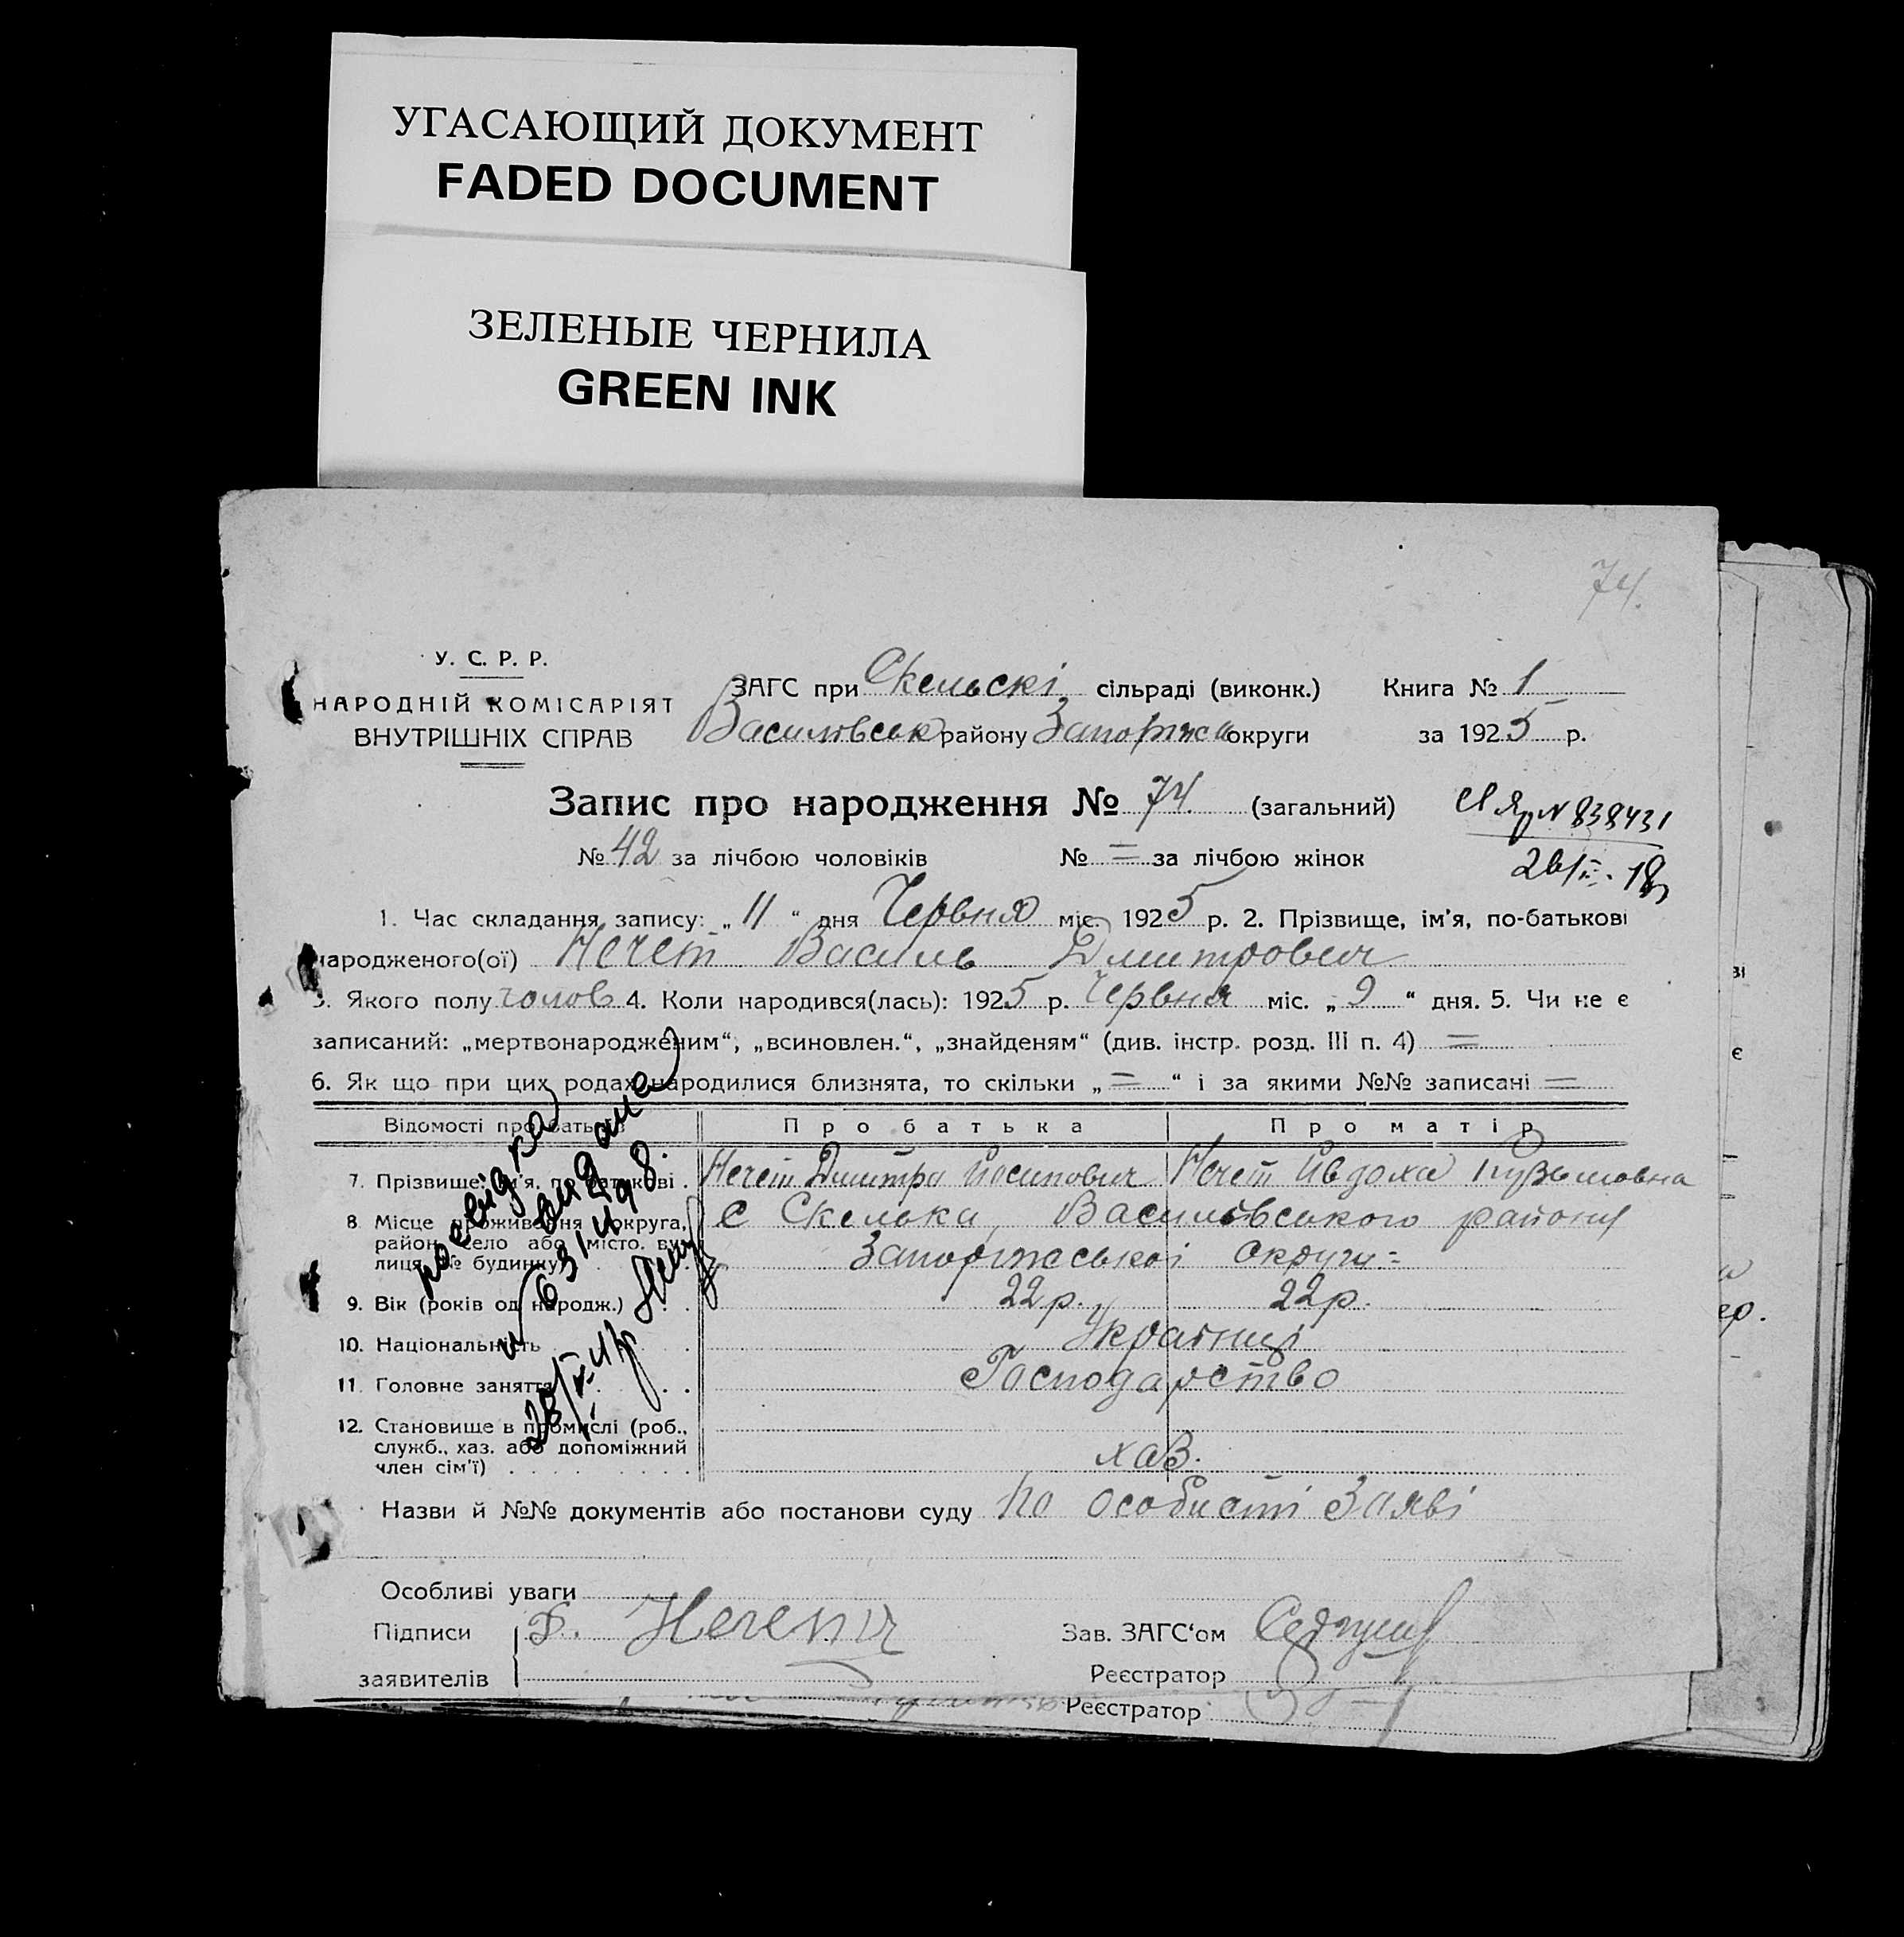 УГАСАЮЩИЙ ДОКУМЕНТ
FADED DOCUMENT
ЗЕЛЕНЫЕ ЧЕРНИЛА
GREEN INK
74.
У. С. Р. Р.
НАРОДНІЙ КОМІСАРІЯТ
ВНУТРІШНІХ СПРАВ
ЗАГС при Скельскі сільраді (виконк.) Книга № 1
Василівськ району Запоріжс округи за 1925 р.
Запис про народження № 74. (загальний)
№ 42 за лічбою чоловіків № = за лічбою жінок
N 838431
1. Час складання запису: „ 11 “ дня Червня міс. 1925 р. 2. Прізвище, ім’я, по-батькові
народженого(ої) Нечет Василь Дмитрович
3. Якого полу чолов 4. Коли народився(лась): 1925 р. Червня міс. „ 9 “ дня. 5. Чи не є
записаний: „мертвонародженим“, „всиновлен.“, „знайденям“ (див. інстр. розд. III п. 4) =
6. Як що при цих родах народилися близнята, то скільки „ = “ і за якими №№ записані =
Відомості про батьків Про батька Про матір
7. Прізвище, ім’я, по-батькові . Нечет Дмитро Йосипович Нечет Івдоха Кузьмовна
8. Місце проживання (округа, с Скельки, Василівського району
район, село або місто, ву-
лиця, № будинку) Запоріжської округи =
9. Вік (років од народж.) . . 22 р. 22 р.
10. Національність . Українці
11. Головне заняття . . . . Господарство
12. Становище в промислі (роб.,
служб., хаз. або допоміжний
член сім’ї) . . . . . . . . хаз.
Назви й №№ документів або постанови суду по особисті заяві
Особливі уваги
Підписи Д. Нечет Зав. ЗАГС‘ом
заявителів Реєстратор
Реєстратор